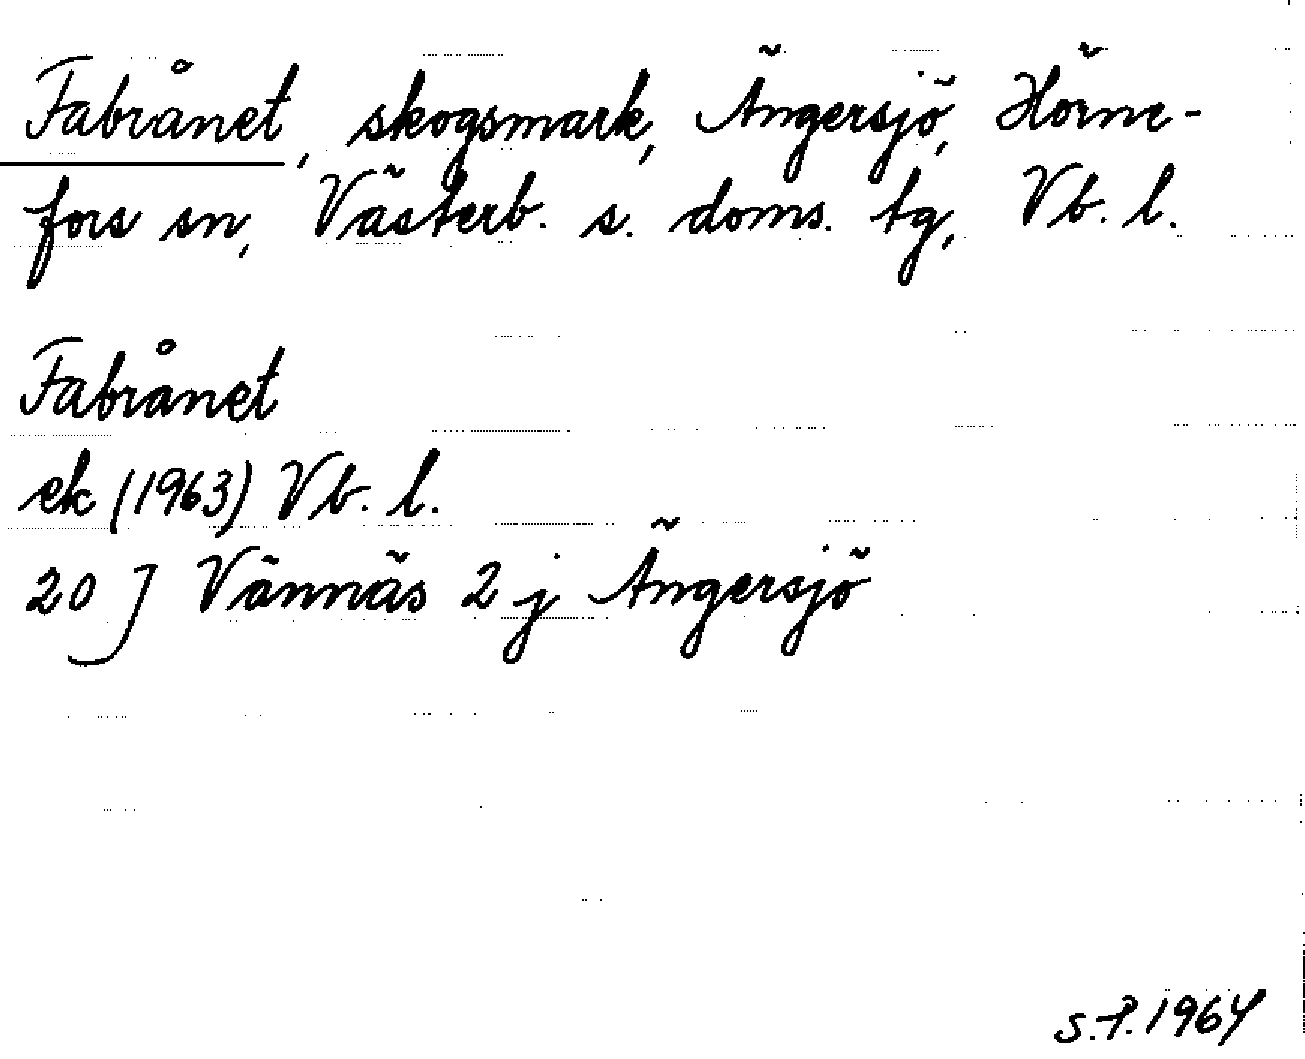 Fabrånet, skogsmark, Ängersjö, Hörne-
fors sn, Västerb. s. doms. tg, Vb. l.
Fabrånet
ek (1963) Vb. l.
20 J Vännäs 2 j Ängersjö
S.P. 1964